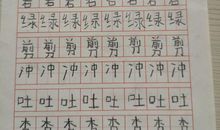 绿 绿 绿 绿 绿 绿 绿
剪 剪 剪 剪 剪 剪 剪
冲 冲 冲 冲 冲 冲 冲
吐 吐 吐 吐 吐 吐 吐
杏 杏 杏 杏 杏 杏 杏